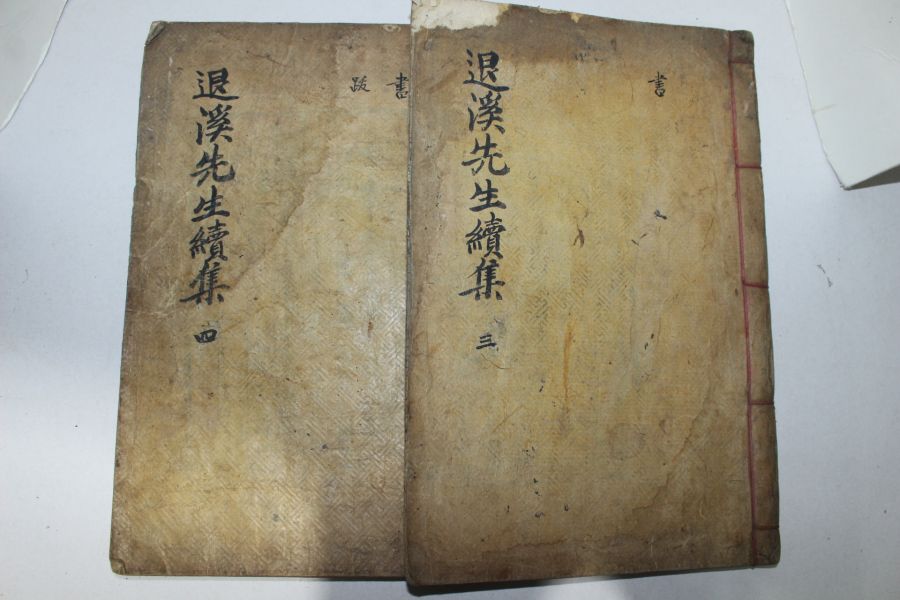 書
退溪先生續集
三
書
跋
退溪先生續集
四